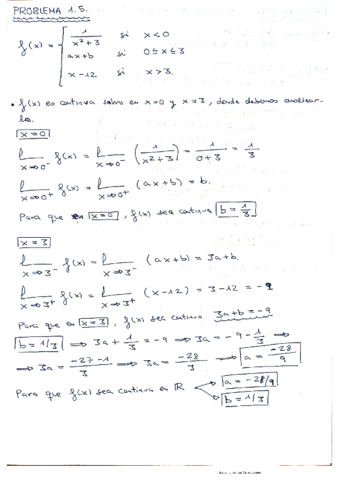 PROBLEMA 1.5.
f(x) = { 1/(x²+3) si x<0
ax+b si 0≤x≤3
x-12 si x>3.
• f(x) es continua salvo en x=0 y x=3, donde debemos analizar-
lo.
x=0
lím x→0⁻ f(x) = lím x→0⁻ (1/(x²+3)) = 1/(0+3) = 1/3
lím x→0⁺ f(x) = lím x→0⁺ (ax+b) = b.
Para que en x=0, f(x) sea continua b = 1/3
x=3
lím x→3⁻ f(x) = lím x→3⁻ (ax+b) = 3a+b.
lím x→3⁺ f(x) = lím x→3⁺ (x-12) = 3-12 = -9
Para que en x=3, f(x) sea continua 3a+b = -9
b=1/3 ⇒ 3a + 1/3 = -9 ⇒ 3a = -9 - 1/3 ⇒
⇒ 3a = (-27-1)/3 ⇒ 3a = -28/3 ⇒ a = -28/9
Para que f(x) sea continua en ℝ a = -28/9
b = 1/3